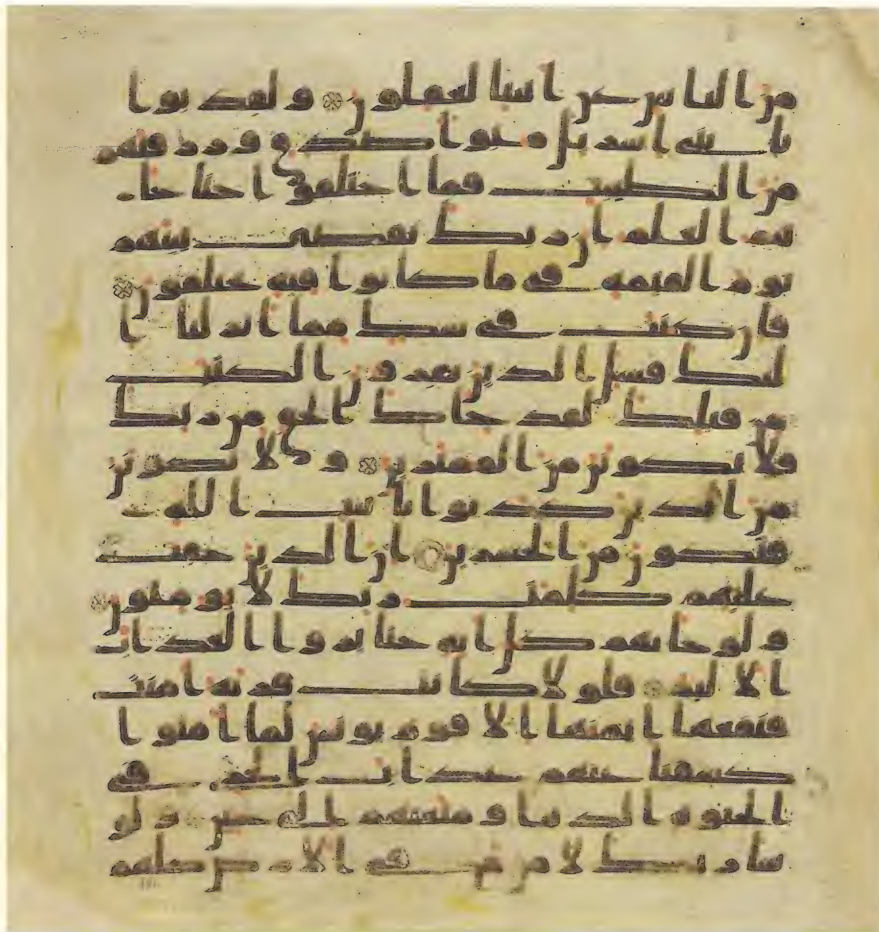 من الناس عن ايتنا لغفلون ولقد بوا
نا بني اسريل مبوا صدق ورزقنهم
من الطيبت فما اختلفوا حتا جا
هم العلم ان ربك يقضي بينهم
يوم القيمة في ما كانوا فيه يختلفون
فان كنت في شك مما انزلنا ا
ليك فسل الذين يقرون الكتب
من قبلك لقد جاك الحق من ربك
فلا تكونن من الممترين ولا تكونن
من الذين كذبوا بايت الله
فتكون من الخسرين ان الذين حقت
عليهم كلمت ربك لا يومنون
ولو جاتهم كل ايه حتا يروا العذاب
الاليم فلولا كانت قريه امنت
فنفعها ايمنها الا قوم يونس لما امنوا
كشفنا عنهم عذاب الخزي في
الحيوه الدنيا ومتعنهم الى حين ولو
شا ربك لامن من في الارض كلهم